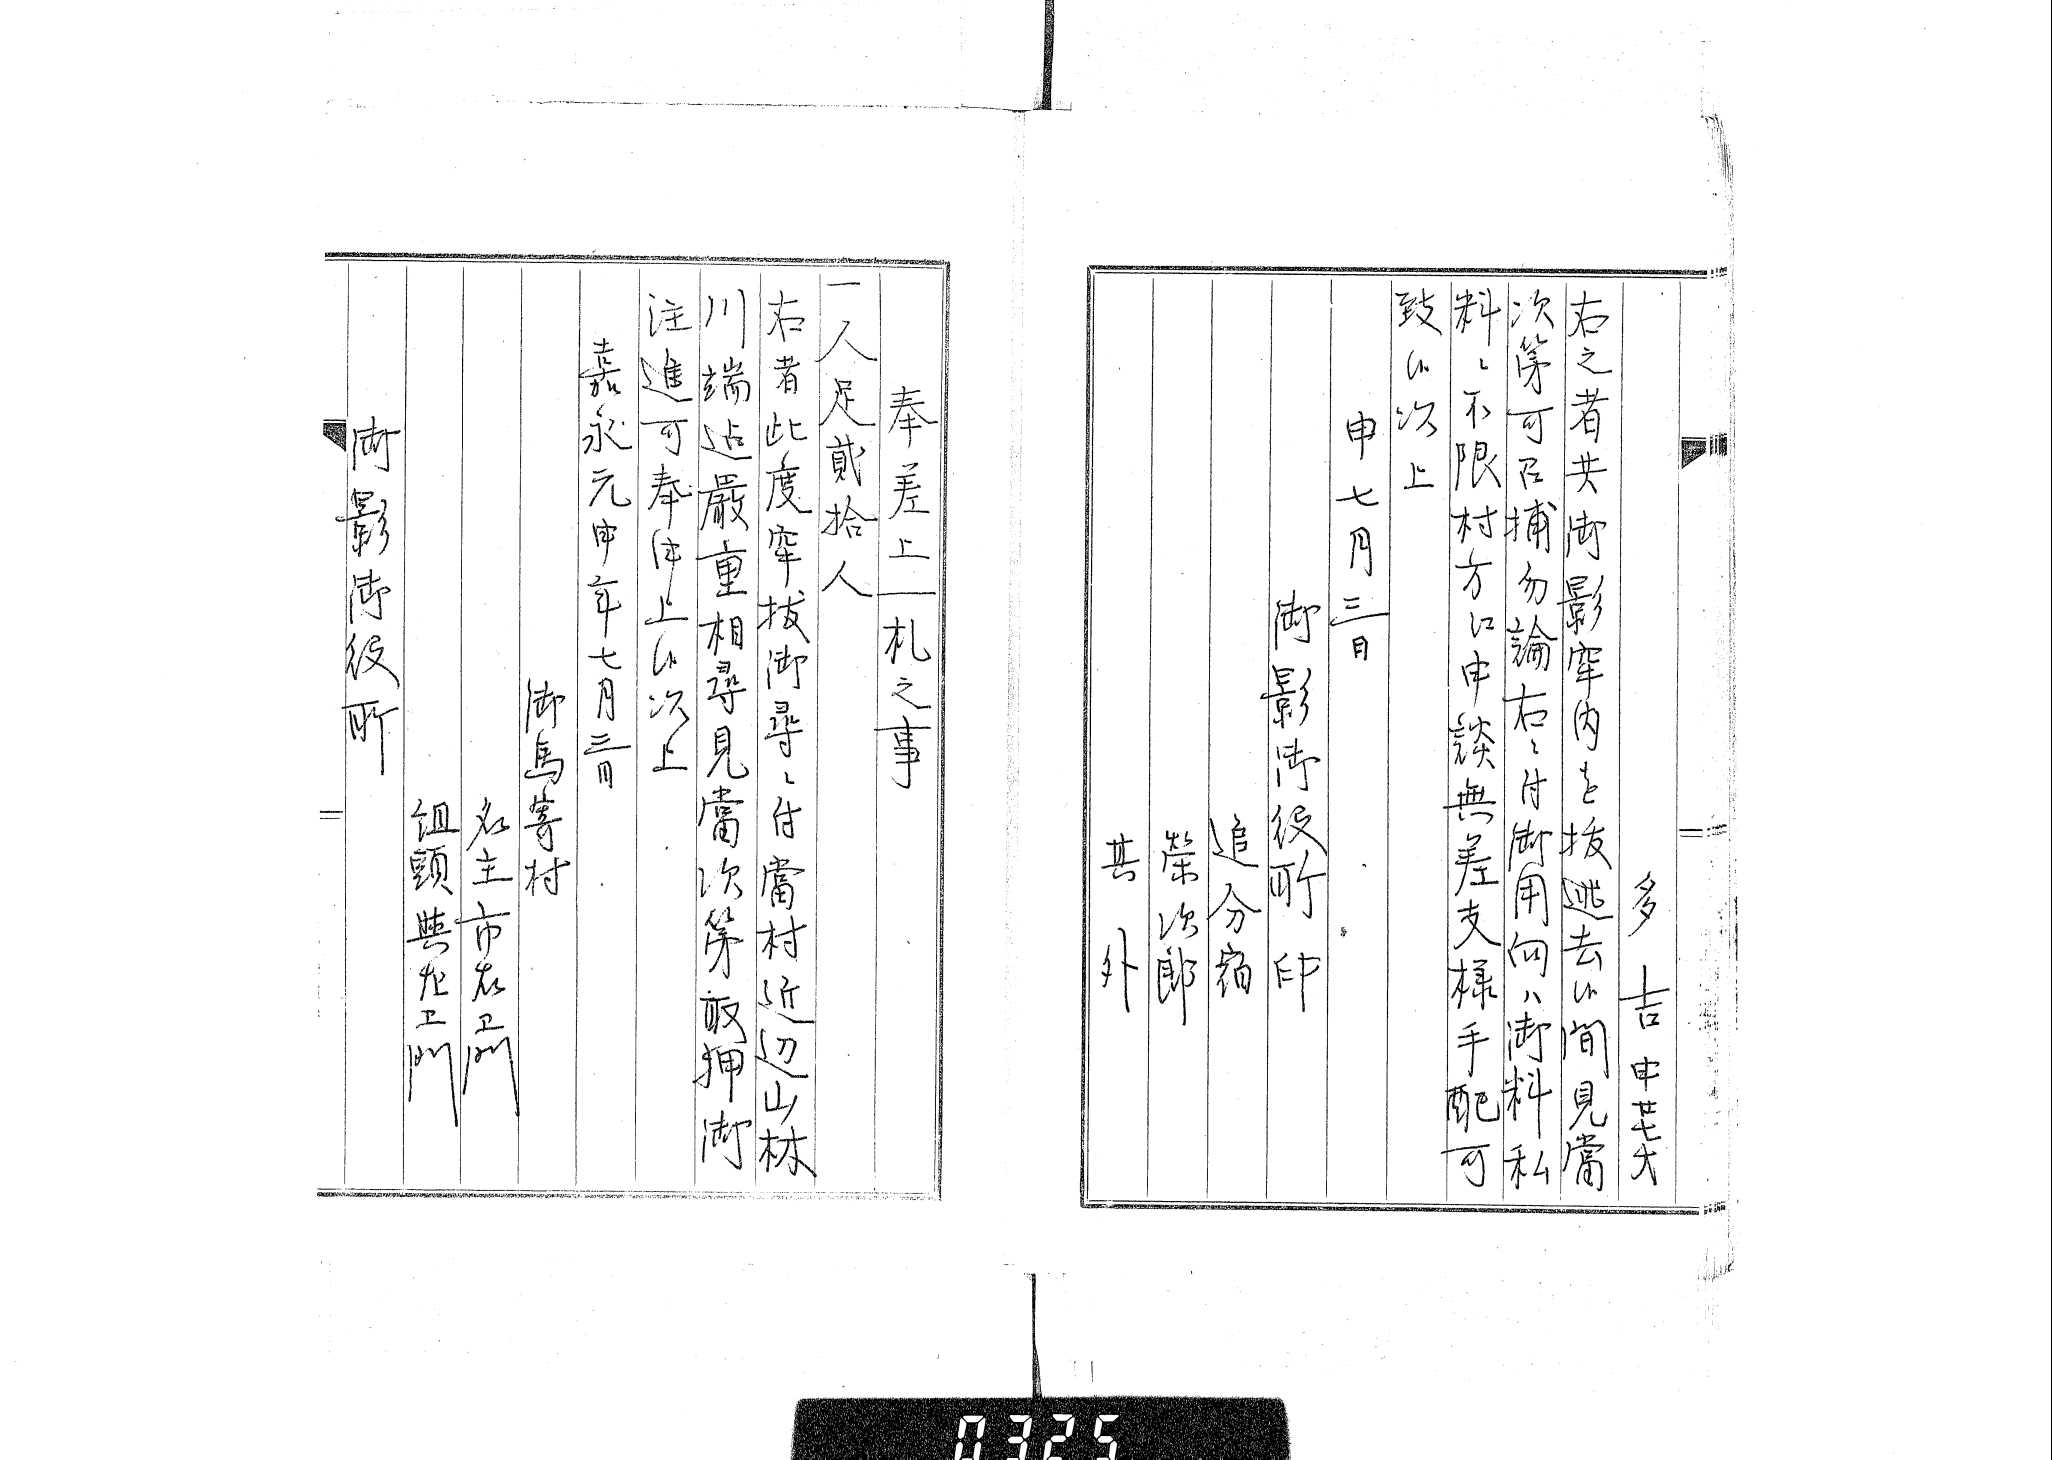 多吉 申廿七才
右之者共御影牢内を抜逃去候間見當
次第可召捕勿論右ニ付御用向ハ御料私
料ニ不限村方江申談無差支様手配可
致候以上
申七月三日
御影御役所印
追分宿
榮次郎
其外
奉差上一札之事
一人足貳拾人
右者此度牢抜御尋ニ付當村近辺山林
川端迠嚴重相尋見當次第取押御
注進可奉申上候以上
嘉永元申年七月三日
御馬寄村
名主市右衛門
組頭與左衛門
御影御役所
0325